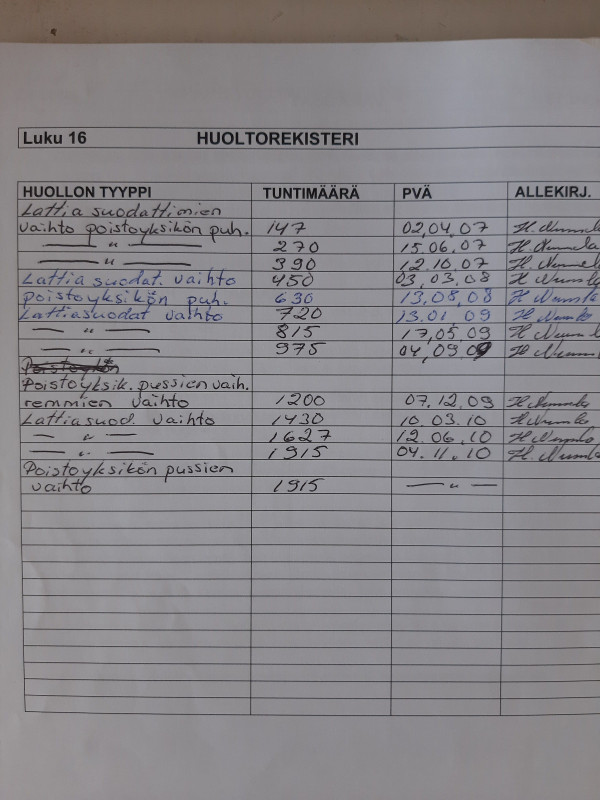 Luku 16 HUOLTOREKISTERI
HUOLLON TYYPPI TUNTIMÄÄRÄ PVÄ ALLEKIRJ.
Lattia suodattimien
vaihto poistoyksikön puh. 147 02,04,07 H. Nummela
— " — 270 15.06.07 H. Nummela
— " — 390 12.10.07 H. Nummela
Lattia suodat. vaihto 450 03,03,08 H
poistoyksikön puh. 630 13,08,08 H
Lattiasuodat vaihto 720 13.01.09 H
— " — 815 17,05.09 H
— " — 975 04,09.09 H
Poistoyksik. pussien vaih.
remmien vaihto 1200 07.12.09 H
Lattiasuod. vaihto 1430 10.03.10 H
— " — 1627 12.06.10 H
— " — 1915 04.11.10 H.
Poistoyksikön pussien
vaihto 1915 — " —